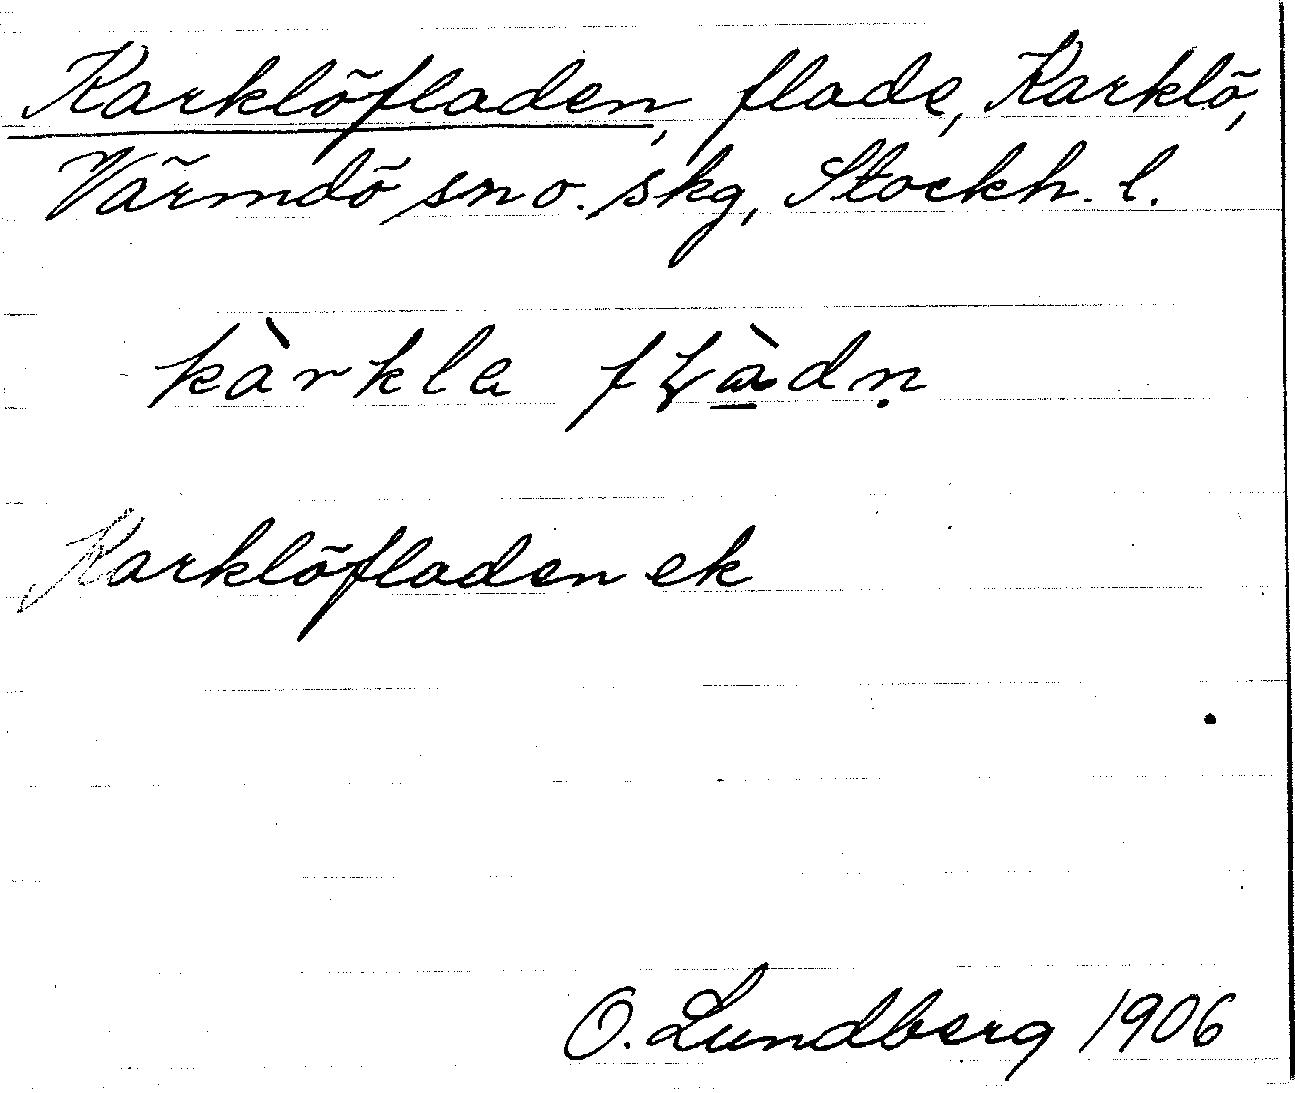 Karklöfladen, flade, Karklö,
Värmdö sn o. skg, Stockh. l.
kàrkla fḷàdṇ
Karklöfladen ek
O. Lundberg 1906